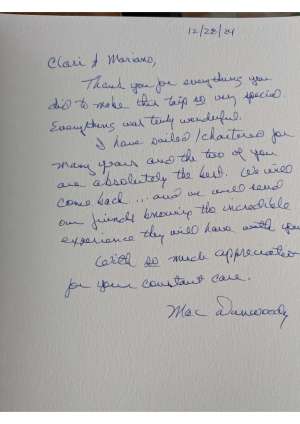 12/28/24
Clari & Mariano,
Thank you for everything you
did to make this trip so very special.
Everything was truly wonderful.
I have sailed/chartered for
many years and the two of you
are absolutely the best. We will
come back ... and we will send
our friends knowing the incredible
experience they will have with you
With so much appreciation
for your constant care.
Mac Dunwoody